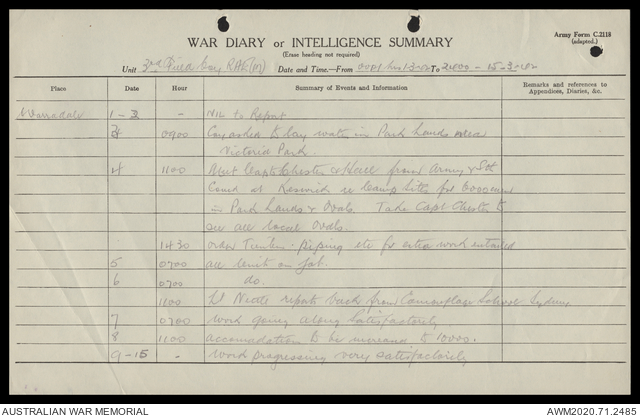 Army Form C.2118
(adapted.)
WAR DIARY or INTELLIGENCE SUMMARY
(Erase heading not required)
Unit 3rd Field Coy RAE (M) Date and Time.—From 0001 hrs 1-3-42 To 2400 - 15-3-42
Place Day Hour Summary of Events and Information Remarks and references to Appendices, Diaries, &c.
Warradale 1-3 - NIL to Report
0900 Coy asked to lay water in Park Lands near
Victoria Park.
4 1100 Meet Capts Chester & Hall from Army & Sth
Comd at Keswick re Camp Sites for 6000 men
in Park Lands & Ovals. Take Capt Chester to
see all local Ovals.
1430 order Timber - piping etc for extra work entailed
5 0700 all Unit on Job.
6 0700 do.
1100 Lt Nettle reports back from Camouflage School Sydney
7 0700 Work going along Satisfactorily
8 1100 accomodation to be increased to 10000.
9-15 - Work progressing very satisfactorily
AUSTRALIAN WAR MEMORIAL AWM2020.71.2485